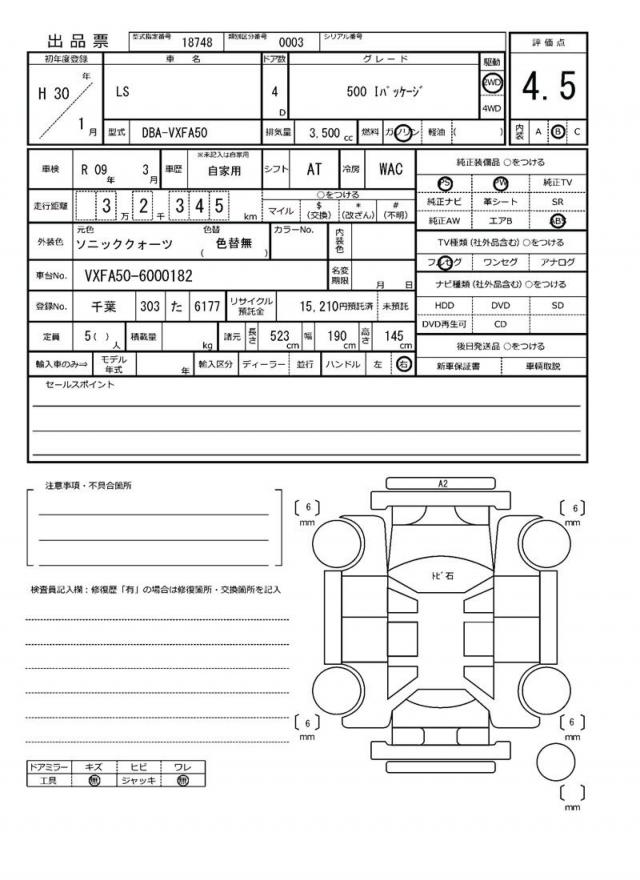 出品票 型式指定番号 18748 類別区分番号 0003 シリアル番号
初年度登録 車名 ドア数 グレード 駆動 評価点
H 30 年 1 月 LS 4 D 500 Iパッケージ 2WD 4WD 4.5
型式 DBA-VXFA50 排気量 3,500 cc 燃料 ガソリン 軽油 ( ) 内装 A B C
車検 R 09 年 3 月 車歴 ※未記入は自家用 自家用 シフト AT 冷房 WAC
走行距離 3 万 2 千 3 4 5 km ○をつける マイル $ (交換) * (改ざん) # (不明)
外装色 元色 ソニッククォーツ 色替 ( 色替無 ) カラーNo. 内装色
車台No. VXFA50-6000182 名変期限 月 日
登録No. 千葉 303 た 6177 リサイクル預託金 15,210円預託済 未預託
定員 5( ) 人 積載量 kg 諸元 長さ 523 cm 幅 190 cm 高さ 145 cm
輸入車のみ⇒ モデル年式 年 輸入区分 ディーラー 並行 ハンドル 左 右
純正装備品 ○をつける
PS PW 純正TV
純正ナビ 革シート SR
純正AW エアB ABS
TV種類(社外品含む) ○をつける
フルセグ ワンセグ アナログ
ナビ種類(社外品含む) ○をつける
HDD DVD SD
DVD再生可 CD
後日発送品 ○をつける
新車保証書 車輌取説
セールスポイント
注意事項・不具合箇所
検査員記入欄:修復歴「有」の場合は修復箇所・交換箇所を記入
A2
[ 6 ] mm
[ 6 ] mm
トビ石
[ 6 ] mm
[ 6 ] mm
[ ] mm
ドアミラー キズ ヒビ ワレ
工具 無 ジャッキ 無